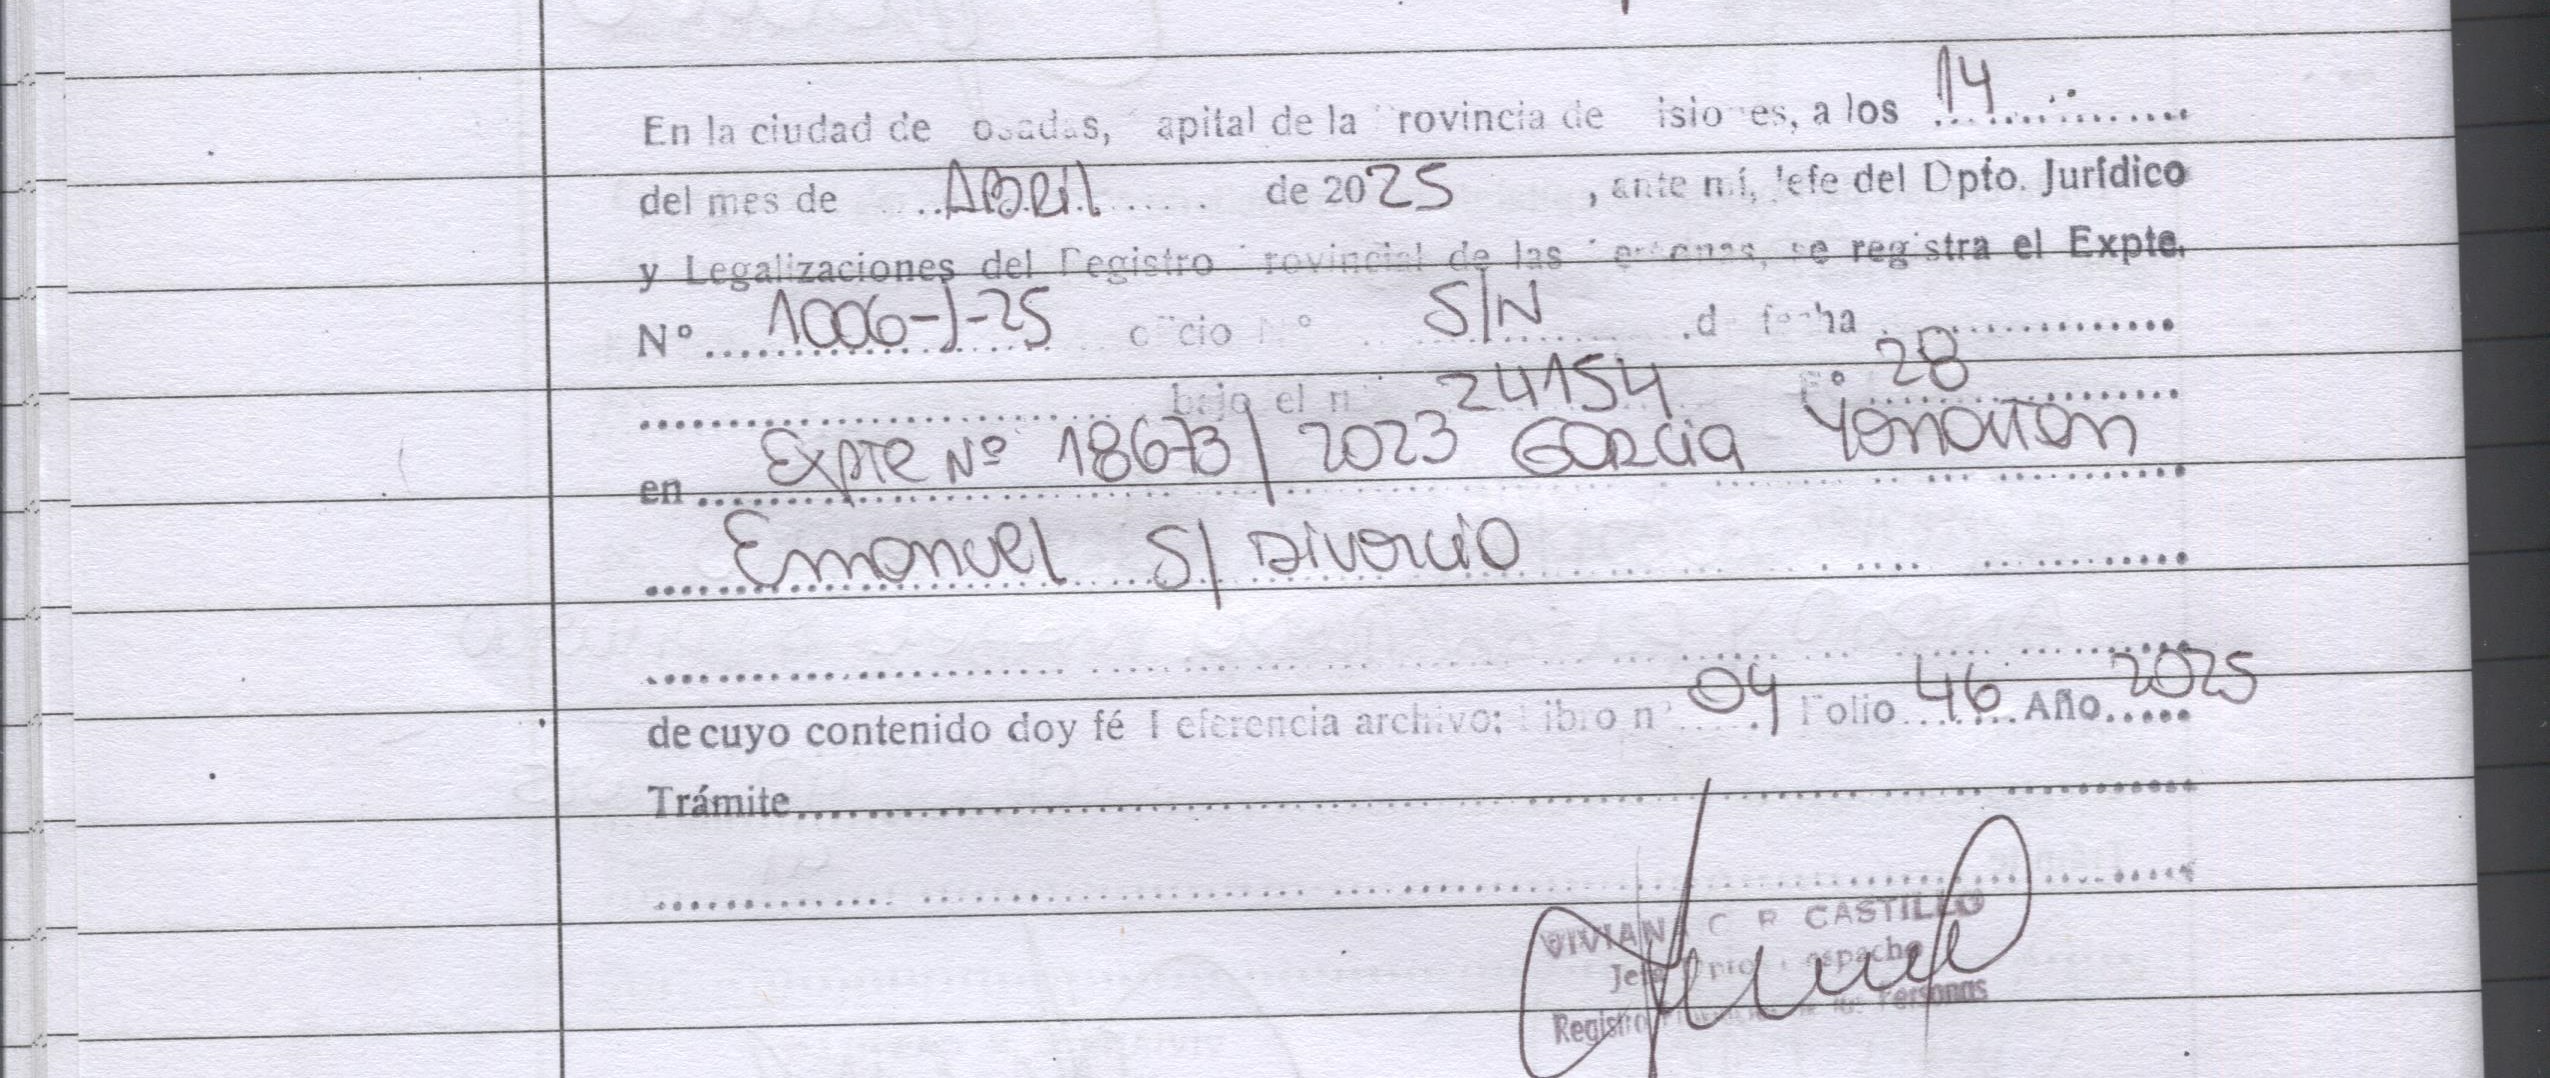 En la ciudad de osadas, apital de la rovincia de isio es, a los 14
del mes de Abril de 2025, ante mí, Jefe del Dpto. Jurídico
y Legalizaciones del Registro rovincial de las ersonas, se registra el Expte.
Nº 1006-J-25 oficio Nº S/N de fecha
bajo el nº 24154 Fº 28
en Expte Nº 18673/2023 Garcia Yonatan
Emanuel S/ Divorcio
de cuyo contenido doy fé Referencia archivo: Libro nº 04 Folio 46 Año 2025
Trámite
VIVIANA C R CASTILLO
Jefe Dpto espacho
Registro Personas